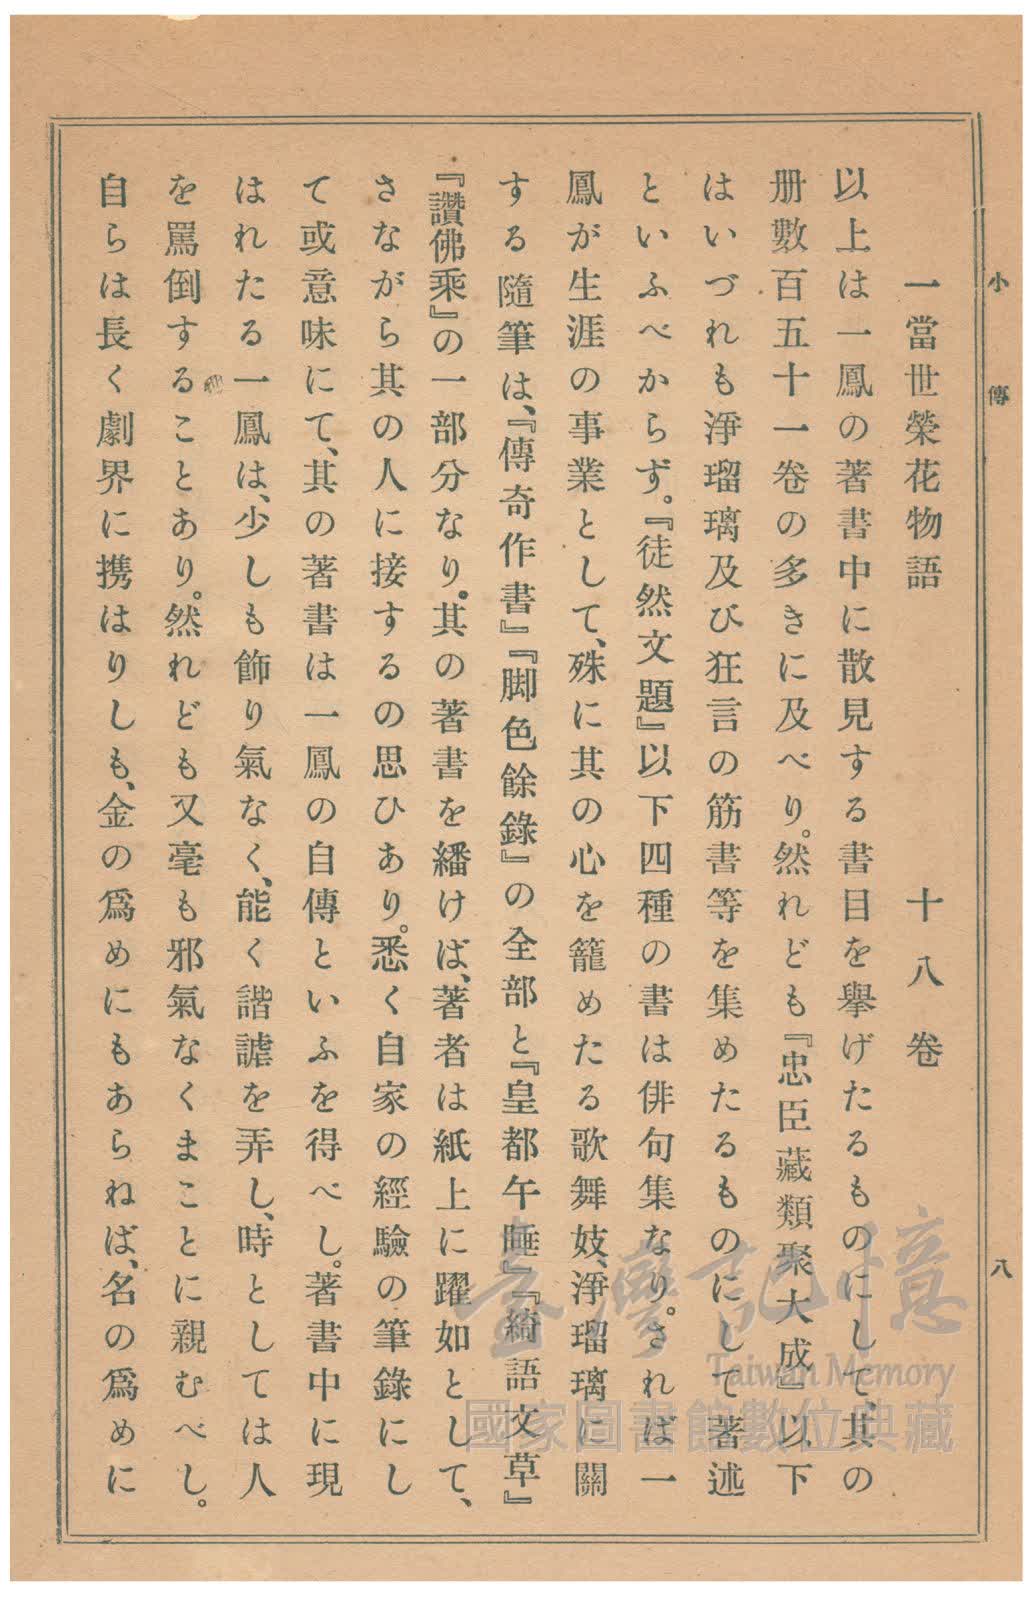 小傳
八
一當世榮花物語　十八卷
以上は一鳳の著書中に散見する書目を擧げたるものにして、其の
册數百五十一卷の多きに及べり。然れども『忠臣藏類聚大成』以下
はいづれも淨瑠璃及び狂言の筋書等を集めたるものにして著述
といふべからず。『徒然文題』以下四種の書は俳句集なり。されば一
鳳が生涯の事業として、殊に其の心を籠めたる歌舞妓、淨瑠璃に關
する隨筆は、『傳奇作書』『脚色餘錄』の全部と『皇都午睡』『綺語文草』
『讚佛乘』の一部分なり。其の著書を繙けば、著者は紙上に躍如として、
さながら其の人に接するの思ひあり。悉く自家の經驗の筆錄にし
て或意味にて、其の著書は一鳳の自傳といふを得べし。著書中に現
はれたる一鳳は、少しも飾り氣なく、能く諧謔を弄し、時としては人
を罵倒することあり。然れども又毫も邪氣なくまことに親むべし。
自らは長く劇界に携はりしも、金の爲めにもあらねば、名の爲めに
臺灣記憶
Taiwan Memory
國家圖書館數位典藏